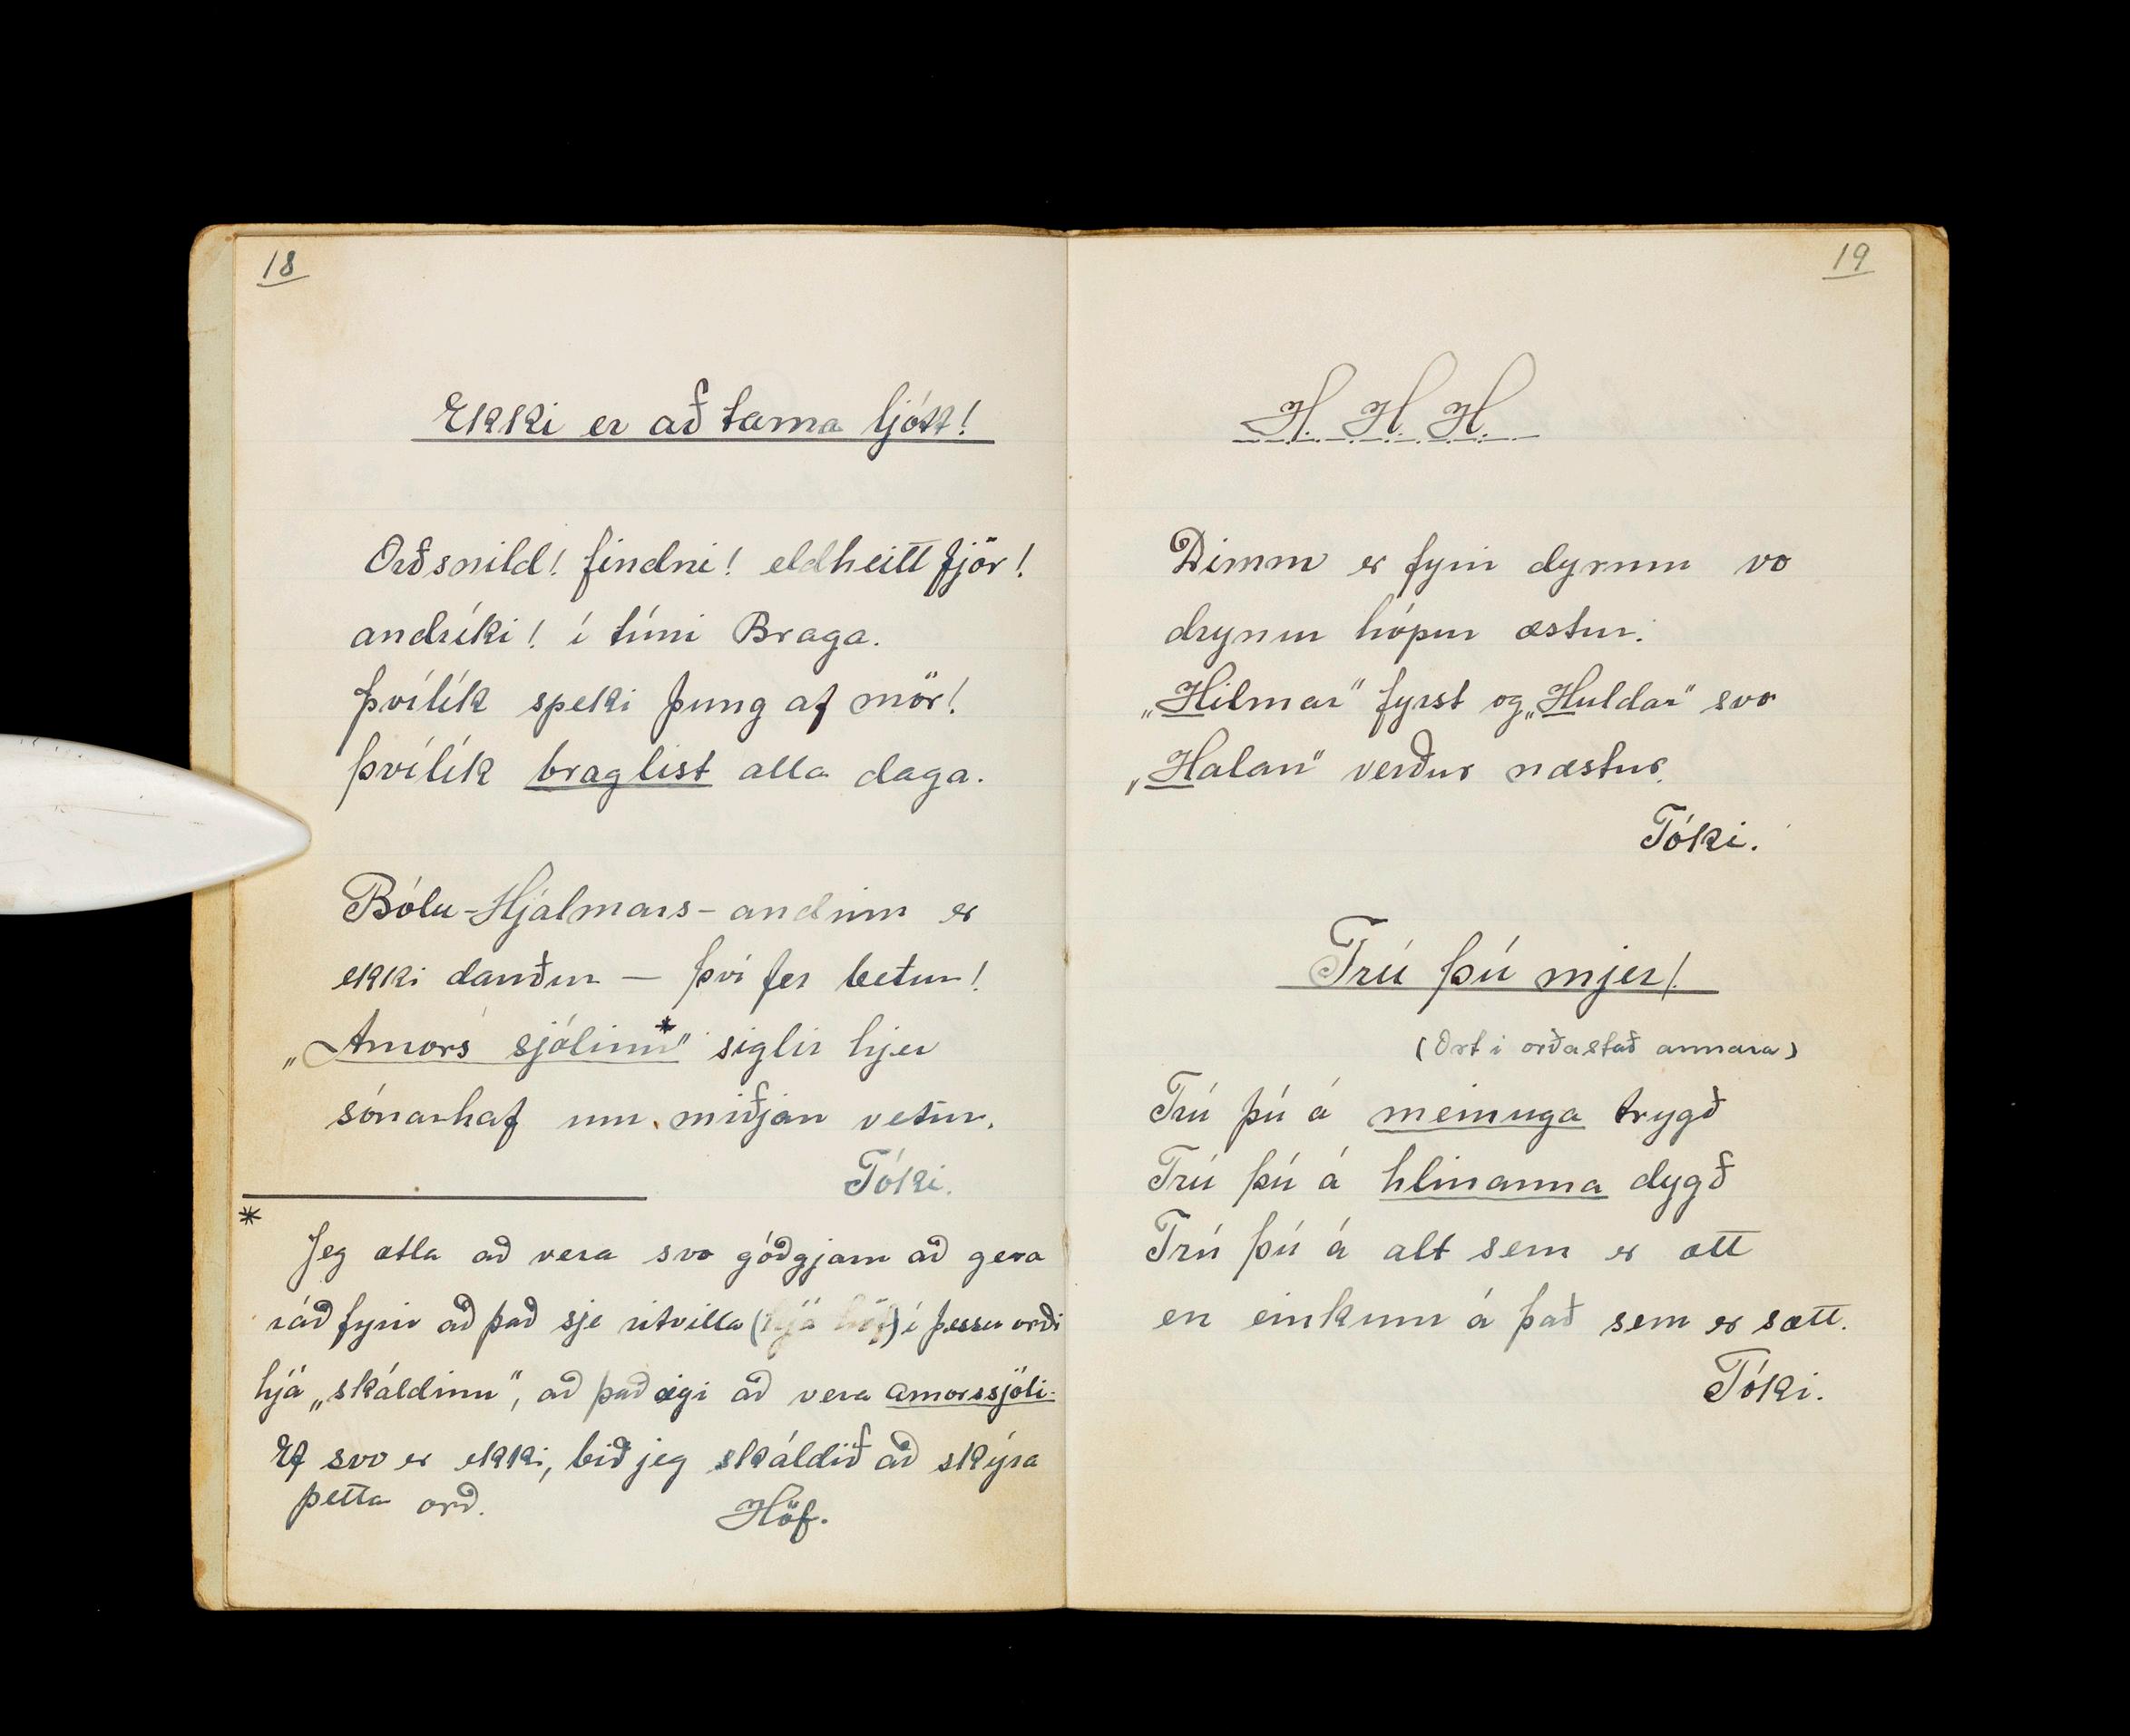 18
Ekki er að tarna ljótt!
Orðsnild! findni! eldheitt fjör!
andríki! í túni Braga.
þvílík speki þung af mör!
þvílík braglist alla daga.
Bólu-Hjálmars-andinn er
ekki dauður — því fer betur!
„Amors sjólinn"* siglir hjer
sónarhaf um miðjan vetur.
Tóki.
* Jeg ætla að vera svo góðgjarn að gera
ráð fyrir að það sje ritvilla ( ) í þessu orði
hjá „skáldinu", að það eigi að vera amorssjóli.
Ef svo er ekki, bið jeg skáldið að skýra
þetta orð. Höf.
19
H. H. H.
Dimm er fyrir dyrum vo
drynur hópur æstur.
„Hilmar" fyrst og „Huldar" svo
„Halan" verður næstur.
Tóki.
Trú þú mjer!
(Ort i orðastað annara)
Trú þú á meinuga trygð
Trú þú á hlinanna dygð
Trú þú á alt sem er ætt
en einkum á það sem er sætt.
Tóki.